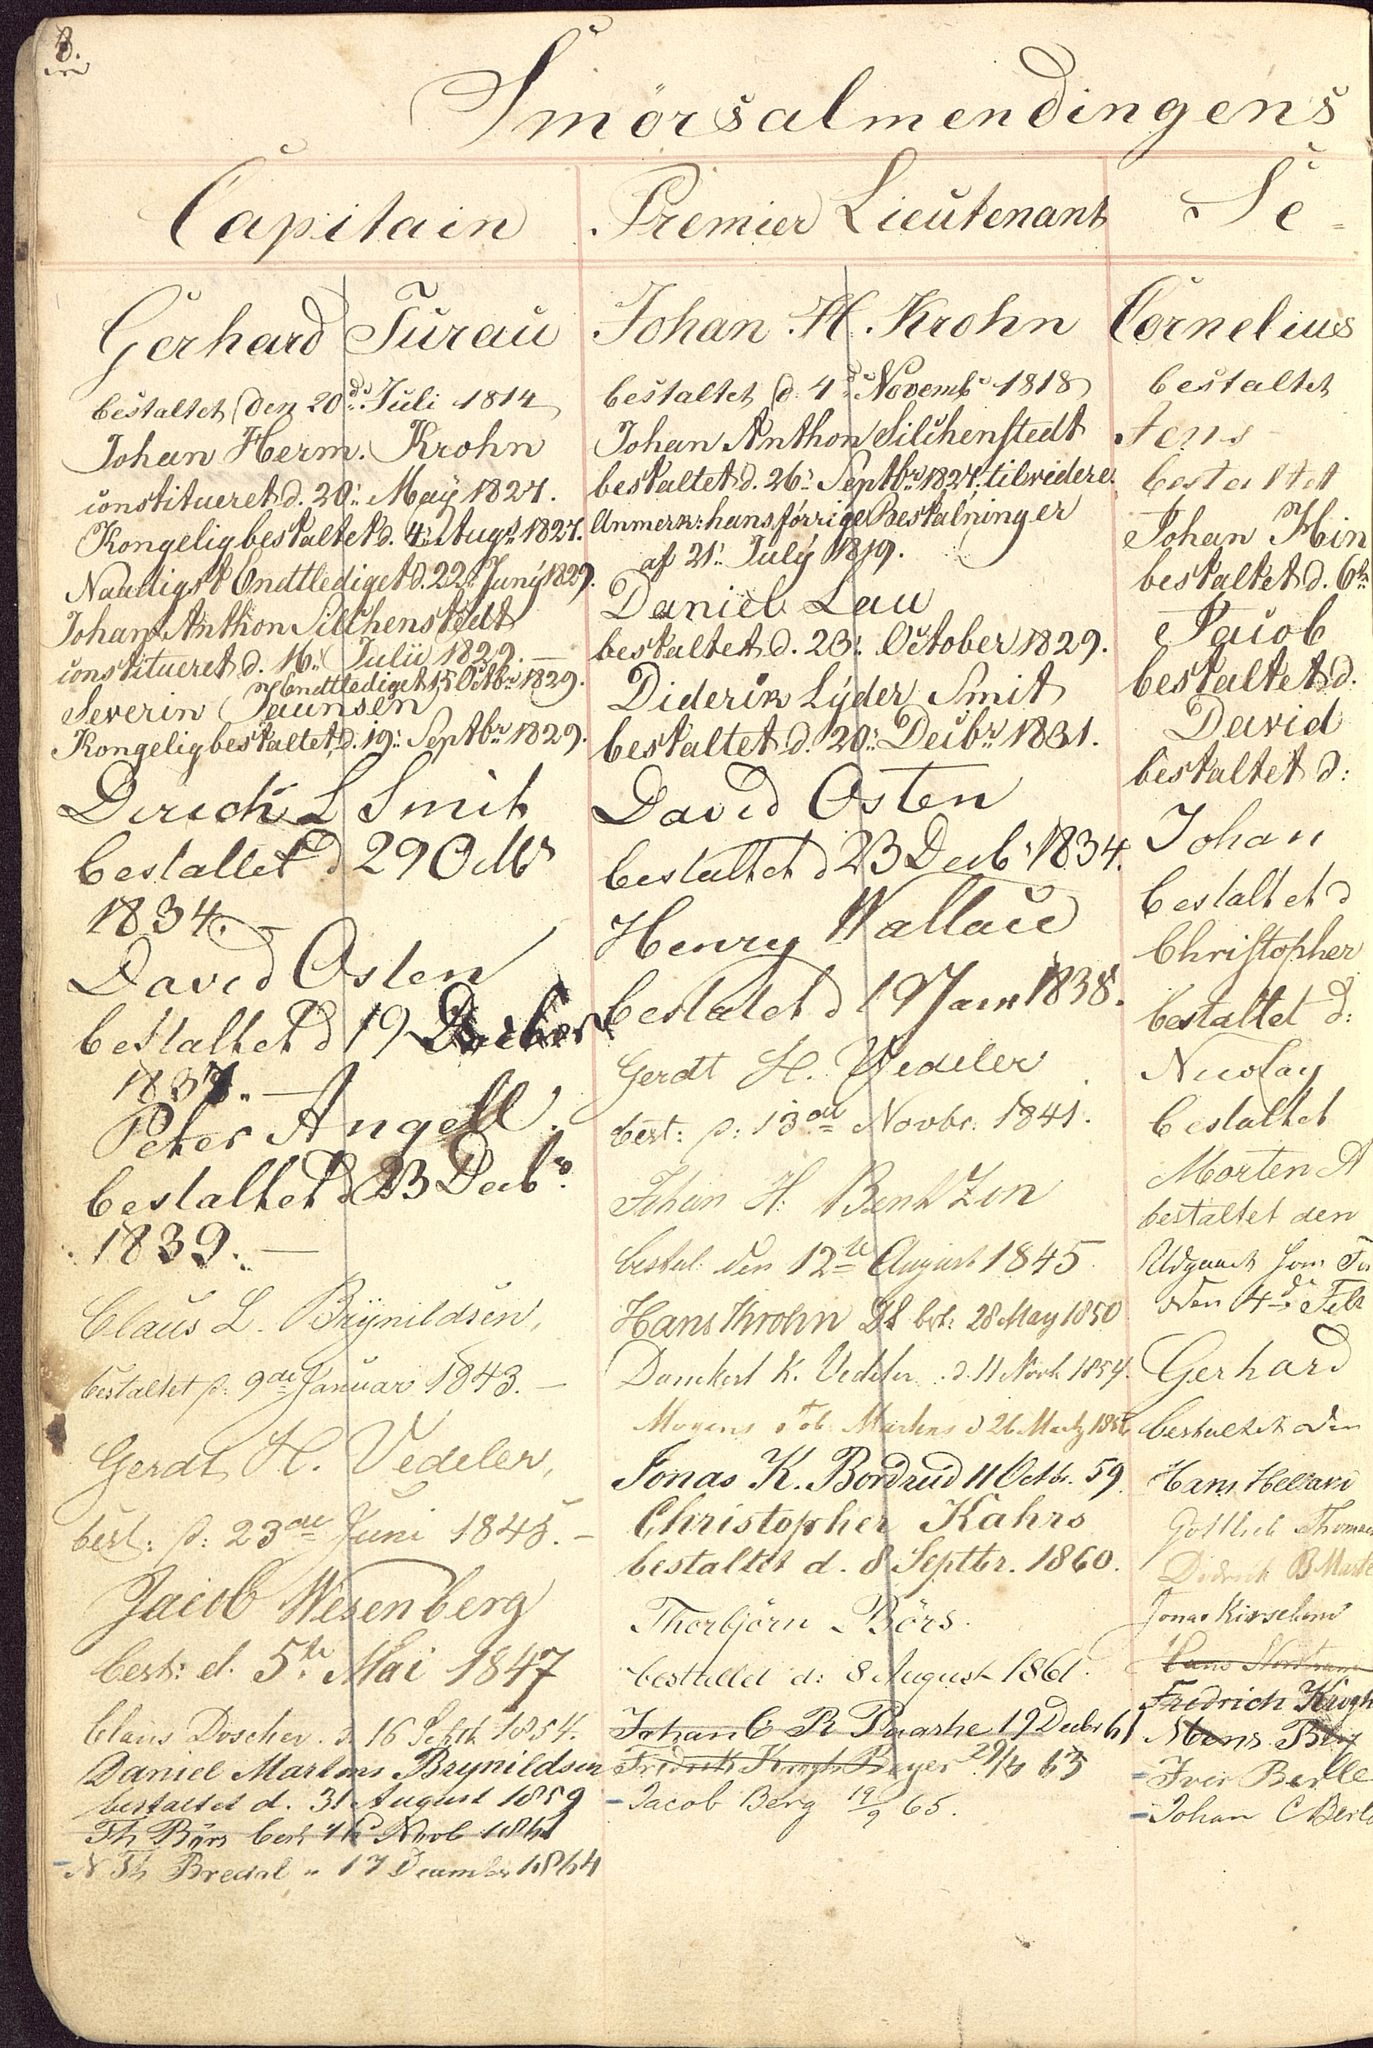 8.
Smörsalmendingens
Capitain
Gerhard Turau
bestaltet den 20de Juli 1814
Johan Herm. Krohn
constitueret d. 20: May 1827.
Kongelig bestaltet d. 4: Augt 1827.
Naadigst Endtlediget d. 22: Juny 1829.
Johan Anthon Silchenstedt
constitueret d. 16: Julii 1829. —
Endtlediget 15 Octbr 1829.
Severin Jaunsen
Kongelig bestaltet d. 19: Septbr 1829.
Dirich L Smit
bestaltet d 29 Octbr
1834. —
David Osten
bestaltet d 19 Decber
1837. —
Peter Angell.
bestaltet d 23 Decbr.
1839. —
Claus L. Brÿnildsen,
bestaltet p: 9de Januar 1843. —
Gerdt H. Vedeler,
best: p: 23de Juni 1845. —
Jacob Wesenberg
best: d. 5te Mai 1847
Claus Döscher. d. 16 Septb 1854.
Daniel Martens Brynildsen
bestaltet d. 31 August 1859
Th Börs best 16 Novb 1861
- N Th Bredal " 17 December 1864
Premier Lieutenant
Johan H. Krohn
bestaltet d. 4de Novembr 1818
Johan Anthon Silchenstedt
bestaltet d. 26: Septbr 1827. tilvidere.
Anmerk: hans förrige Bestalninger
af 21: July 1819.
Daniel Lau
bestaltet d. 23: October 1829.
Diderik Lyder Smit
bestaltet d. 20: Decbr 1831.
David Osten
bestaltet d 23 Decbr 1834.
Henry Wallace
bestaltet d 19 Janr 1838.
Gerdt H. Vedeler
best: p: 13de Novbr. 1841.
Johan H. BentZon
bestal. den 12te August 1845.
Hans Krohn bst: 28 May 1850
Danckert K. Vedeler . d. 11 Novb 1854.
Mogens Tob. Martens d 26 Martz 1856
Jonas K. Bordrud 11 Octbr. 59.
Christopher Kahrs
bestaltet d. 8 Septbr. 1860.
Thorbjörn Börs.
bestalled d: 8 August 1861.
Johan C R Paaske 19 Decbr 61
Fredrik Krogh Beyer 29/4 63
- Jacob Berg 19/9 65.
Se=
Cornelius
bestaltet
Jens
bestaltet
Johan Hin
bestaltet d. 6te
Jacob
bestaltet d.
David
bestaltet d:
Johan
bestaltet d
Christopher
bestaltet d:
Nicolay
bestaltet
Morten A
bestaltet den
Udgaaet som
den 4de Feb
Gerhard
bestaltet den
Hans
Gottlieb Thomas
Didrich B Marte
Jonas
Hans
Fredrich Krogh
Mons Berg
- Iver Berlle
- Johan C Berl